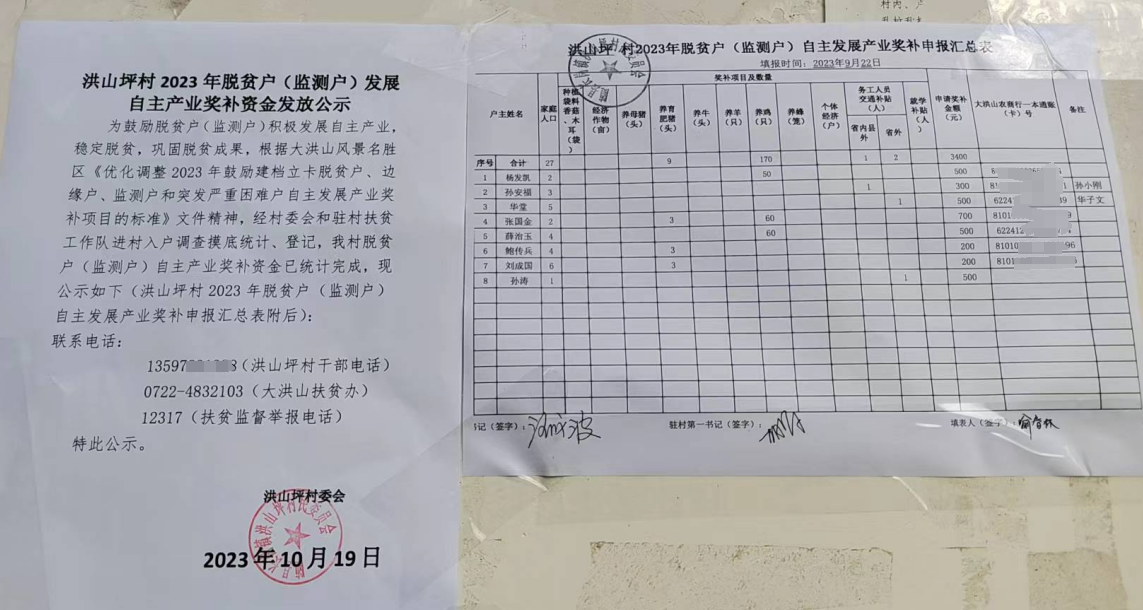 洪山坪村 2023 年脱贫户（监测户）发展
自主产业奖补资金发放公示
为鼓励脱贫户(监测户)积极发展自主产业，
稳定脱贫，巩固脱贫成果，根据大洪山风景名胜
区《优化调整 2023 年鼓励建档立卡脱贫户、边
缘户、监测户和突发严重困难户自主发展产业奖
补项目的标准》文件精神，经村委会和驻村扶贫
工作队进村入户调查摸底统计、登记，我村脱贫
户（监测户）自主产业奖补资金已统计完成，现
公示如下（洪山坪村 2023 年脱贫户（监测户）
自主发展产业奖补申报汇总表附后）：
联系电话：
13597 8(洪山坪村干部电话)
0722-4832103（大洪山扶贫办）
12317（扶贫监督举报电话）
特此公示。
洪山坪村委会
2023 年 10 月 19 日
洪山坪村2023年脱贫户（监测户）自主发展产业奖补申报汇总表
填报时间：2023年9月22日
户主姓名 家庭人口 奖补项目及数量 申请奖补金额（元） 大洪山农商行一本通账（卡）号 备注
种植袋料香菇、木耳（袋） 经济作物（亩） 养母猪（头） 养育肥猪（头） 养牛（头） 养羊（只） 养鸡（只） 养蜂（笼） 个体经济（户） 务工人员交通补贴（人） 就学补贴（人）
省内县外 省外
序号 合计 27 9 170 1 2 3400
1 杨发凯 2 50 500
2 孙安福 3 1 300 81 孙小刚
3 华堂 5 1 500 6224 39 华子文
4 张国金 2 3 60 700 8101 9
5 薛治玉 4 60 500 62241
6 鲍传兵 4 3 200 8101 96
7 刘成国 6 3 200 8101
8 孙涛 1 1 500
记（签字）： 驻村第一书记（签字）： 填表人（签字）：